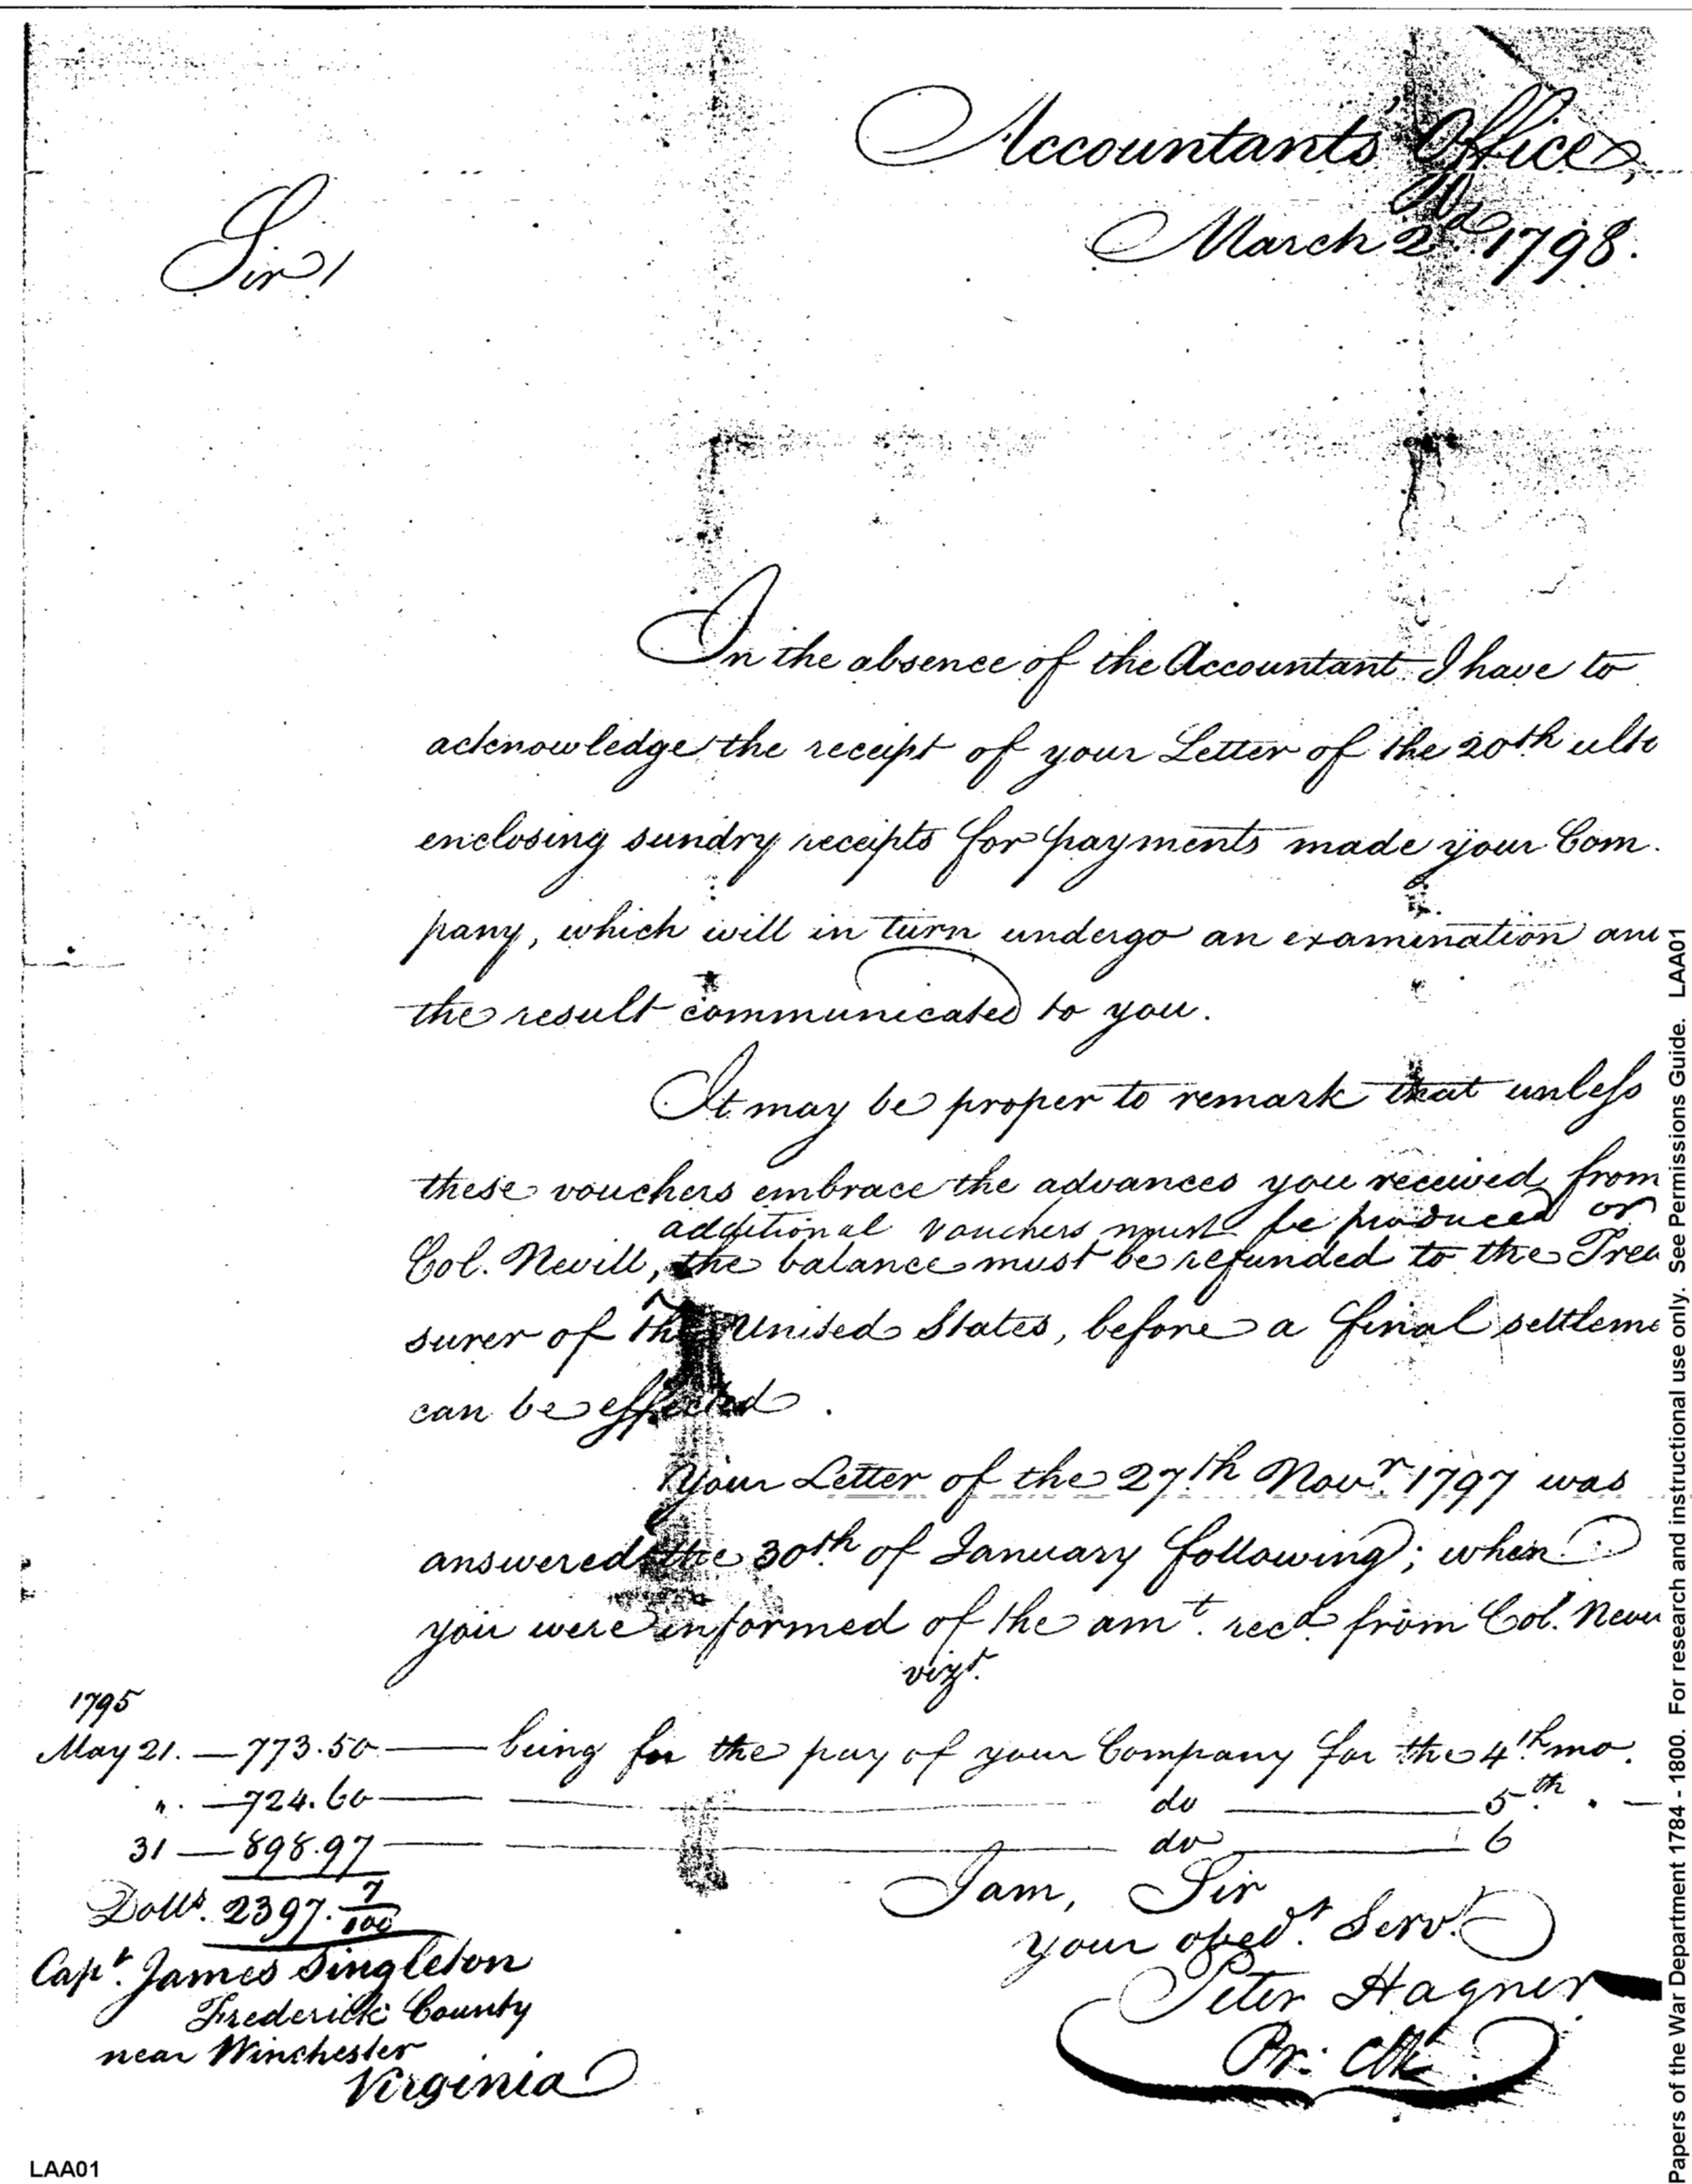 Accountants' Office,
March 2d. 1798.
Sir/
In the absence of the Accountant I have to
acknowledge the receipt of your Letter of the 20th ulto
enclosing sundry receipts for payments made your Com.
pany, which will in turn undergo an examination an
the result communicated to you.
It may be proper to remark that unless
these vouchers embrace the advances you received from
additional vouchers must be produced or
Col. Nevill, the balance must be refunded to the Trea
surer of the United States, before a final settleme
can be effected.
Your Letter of the 27th Novr. 1797 was
answered the 30th of January following; when
you were informed of the amt. recd. from Col. Nevi
vizt.
1795
May 21. — 773.50 — being for the pay of your Company for the 4th mo.
". — 724.60 — do — 5th . —
31 — 898.97 — do — 6
Dolls. 2397. 7/100
I am, Sir
your obedt. Servt.
Peter Hagner
Pr: Clk
Capt. James Singleton
Frederick County
near Winchester
Virginia
LAA01
Papers of the War Department 1784 - 1800. For research and instructional use only. See Permissions Guide. LAA01